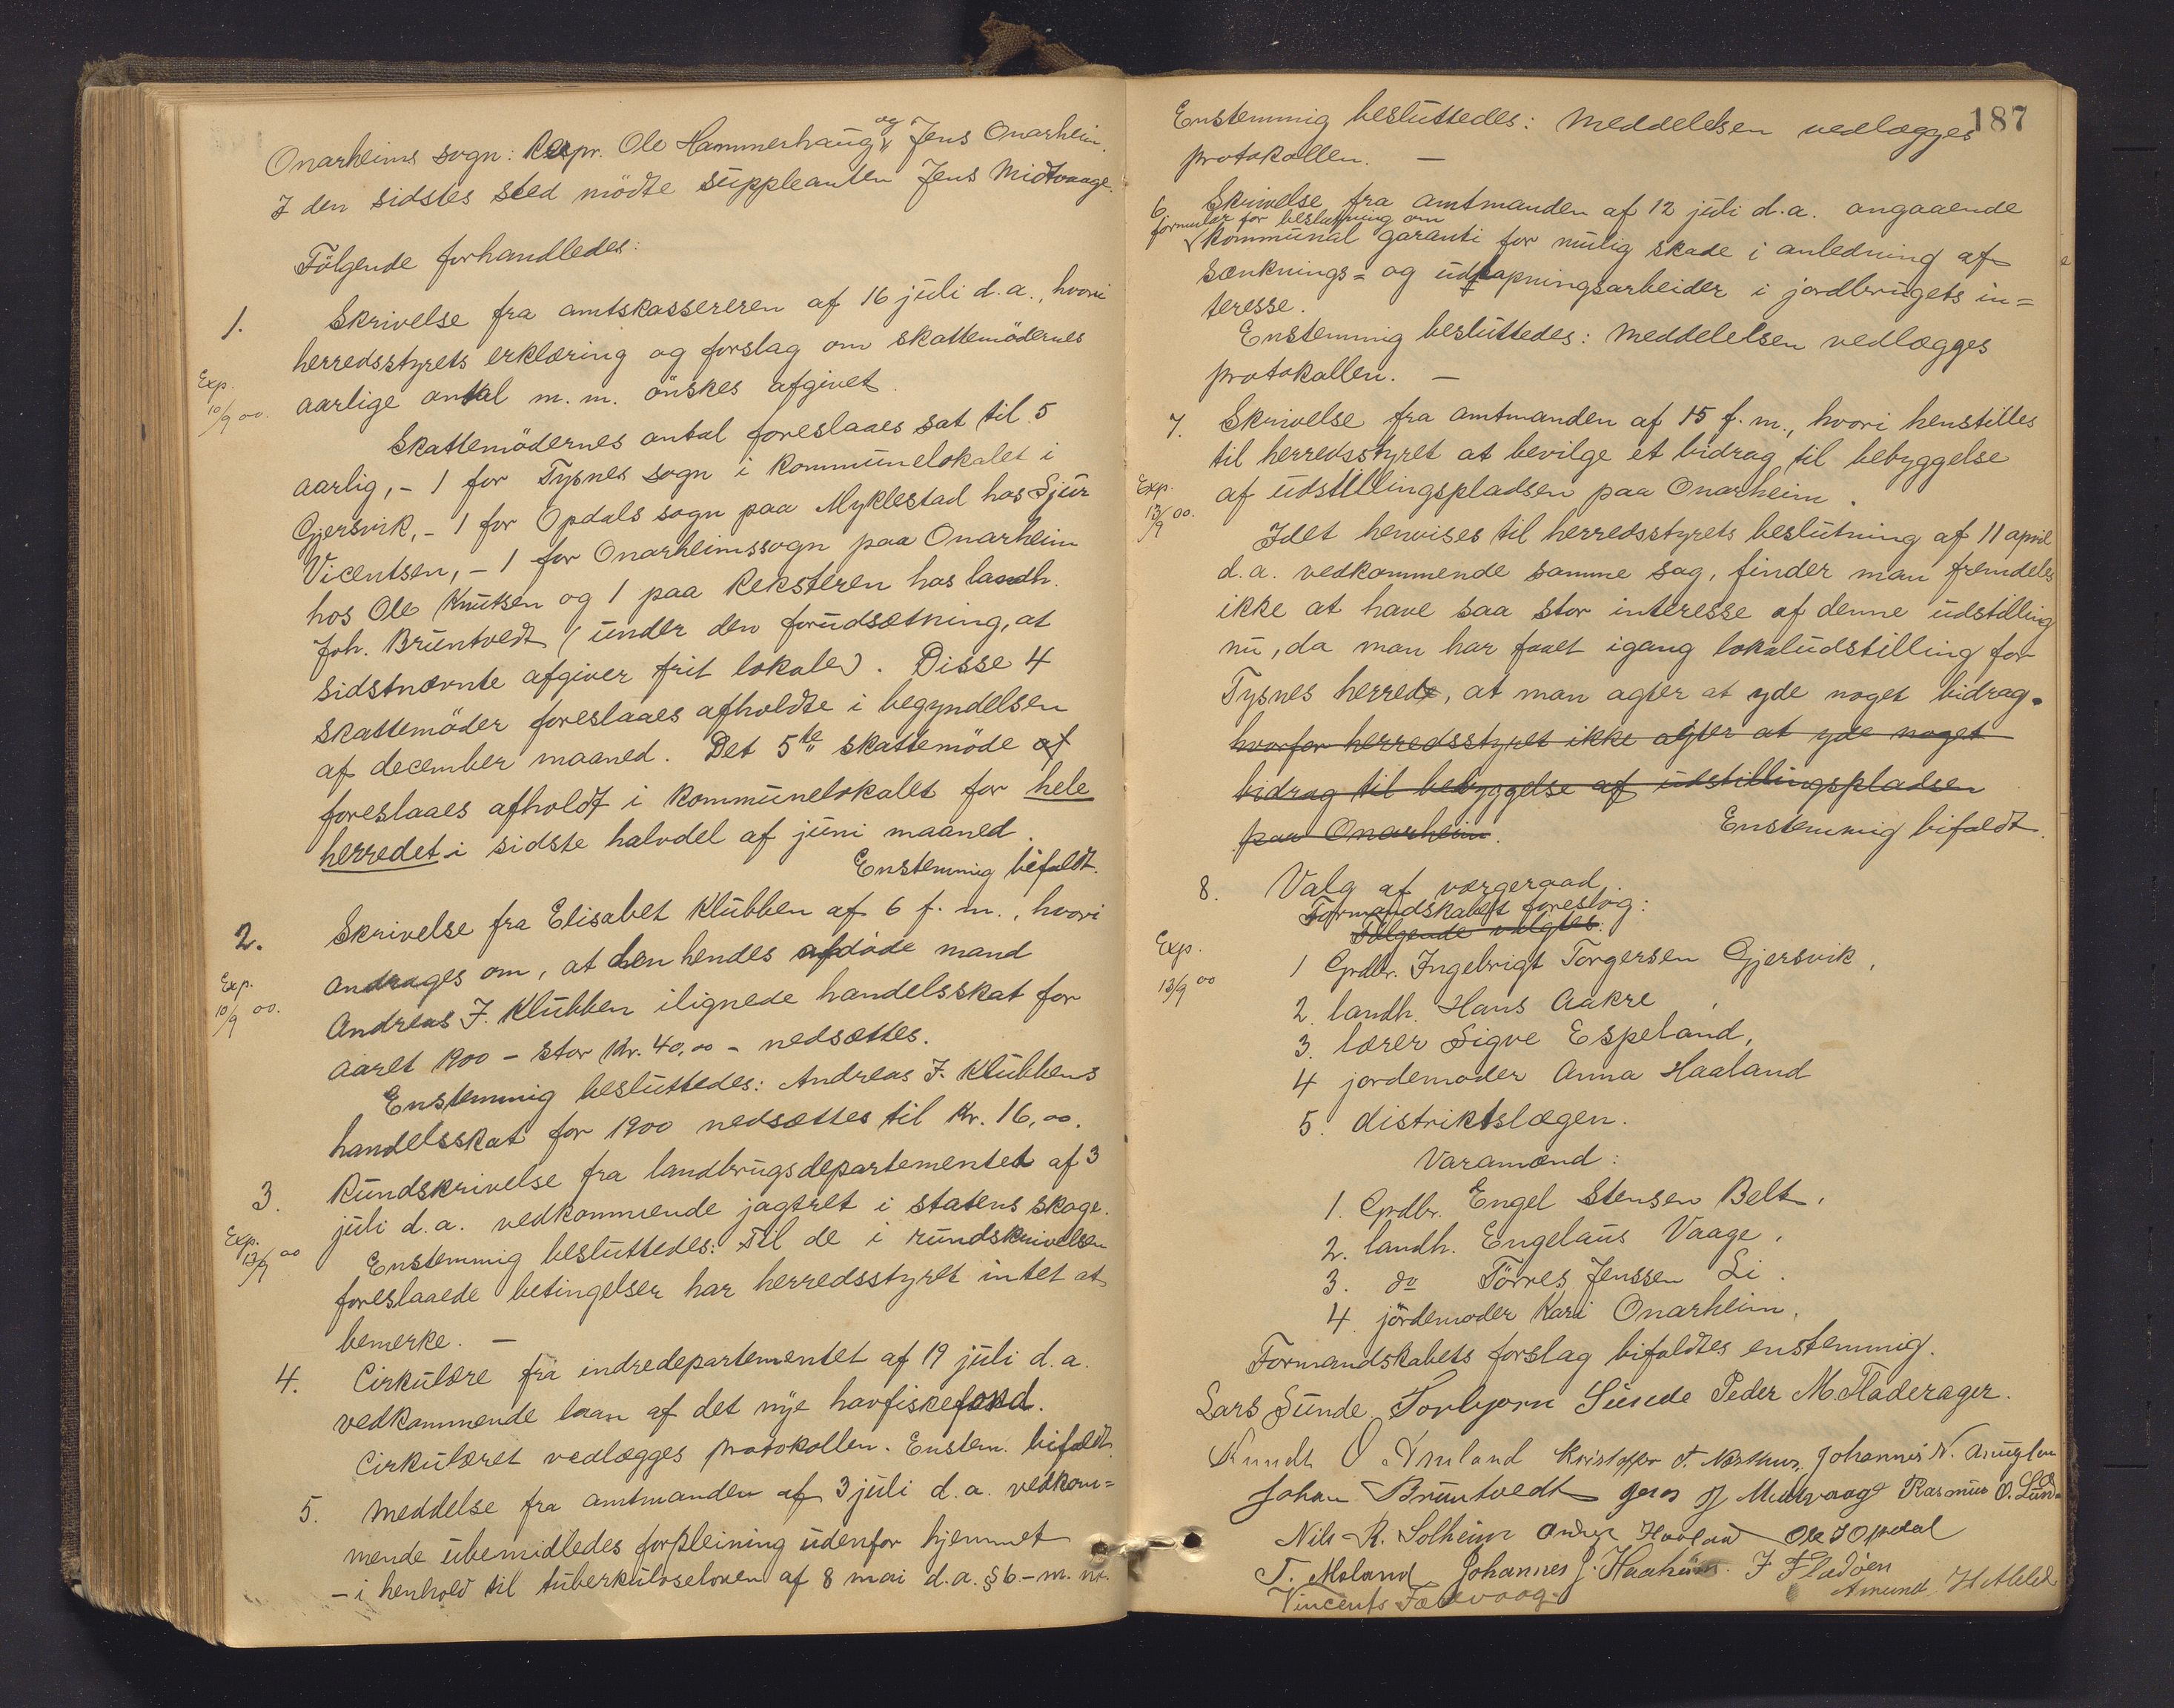 Onarheims sogn: Repr. Ole Hammerhaug og Jens Onarheim.
I den sidstes sted mödte suppleanten Jens Midtvaage.
Fölgende forhandledes:
1. Skrivelse fra amtskassereren af 16 juli d.a., hvori
herredsstyrets erklæring og forslag om skattemödernes
Exp. 10/9 00. aarlige antal m. m. önskes afgivet.
Skattemödernes antal foreslaaes sat til 5
aarlig, - 1 for Tysnes sogn i kommunelokalet i
Gjersvik, - 1 for Opdals sogn paa Myklestad hos Sjur
Vicentsen, - 1 for Onarheimssogn paa Onarheim
hos Ole Knutsen og 1 paa Reksteren hos landh.
Joh. Bruntvedt (under den forudsætning, at
sidstnævnte afgiver frit lokale). Disse 4
skattemöder foreslaaes afholdte i begyndelsen
af december maaned. Det 5te skattemöde af
foreslaaes afholdt i kommunelokalet for hele
herredet i sidste halvdel af juni maaned.
Enstemmig bifaldt.
2. Skrivelse fra Elisabet Klubben af 6 f. m., hvori
Exp. 10/9 00. andrages om, at den hendes afdöde mand
Andreas J. Klubben ilignede handelsskat for
aaret 1900 - stor Kr. 40,00 - nedsættes.
Enstemmig besluttedes: Andreas J. Klubbens
handelsskat for 1900 nedsættes til Kr. 16,00.
3. Rundskrivelse fra landbrugsdepartementet af 3
juli d.a. vedkommende jagtret i statens skoge.
Exp. 13/9 00 Enstemmig besluttedes: Til de i rundskrivelsen
foreslaaede betingelser har herredsstyret intet at
bemerke. —
4. Cirkulære fra indredepartementet af 19 juli d.a.
vedkommende laan af det nye havfiskefond.
Cirkulæret vedlægges protokollen. Enstem. bifaldt.
5. Meddelse fra amtmanden af 3 juli d.a. vedkom=
mende ubemidledes forpleining udenfor hjemmet
- i henhold til tuberkuloseloven af 8 mai d.a. § 6 - m. m.
187
Enstemmig besluttedes: Meddelelsen vedlægges
protokollen. —
6. Skrivelse fra amtmanden af 12 juli d.a. angaaende
formular for beslutning om
kommunal garanti for mulig skade i anledning af
sænknings= og udtapningsarbeider i jordbrugets in=
teresse.
Enstemmig besluttedes: Meddelelsen vedlægges
protokollen. —
7. Skrivelse fra amtmanden af 15 f. m., hvori henstilles
til herredsstyret at bevilge et bidrag til bebyggelse
Exp. 13/9 00. af udstillingspladsen paa Onarheim.
Idet henvises til herredsstyrets beslutning af 11 april
d.a. vedkommende samme sag, finder man fremdeles
ikke at have saa stor interesse af denne udstilling
nu, da man har faaet igang lokaludstilling for
Tysnes herred, at man agter at yde noget bidrag.
hvorfor herredsstyret ikke agter at yde noget
bidrag til bebyggelse af udstillingspladsen
paa Onarheim. Enstemmig bifaldt.
8. Valg af værgeraad.
Formandskabet foreslog:
Fölgende valgtes:
Exp. 13/9 00
1 Grdbr. Ingebrigt Torgersen Gjersvik,
2. landh. Hans Aakre,
3. lærer Sigve Espeland,
4 jordemoder Anna Haaland
5. distriktslægen.
Varamænd:
1. Grdbr. Engel Stensen Belt,
2. landh. Engelaus Vaage,
3. do Törres Jenssen Li.
4. jordemoder Kari Onarheim.
Formandskabets forslag bifaldtes enstemmig.
Lars Sunde Torbjorn Sunde Peder M. Fladerager.
Knudt O Amland Kristoffer T. Johannis N.
Johan Bruntvedt Jens J Midtvaage Rasmus O. Lund
Nils R. Solheim Haaland Ole J Opdal
T. Meland Johannes J. Haaheim. J Fladöen
Vincents Amund